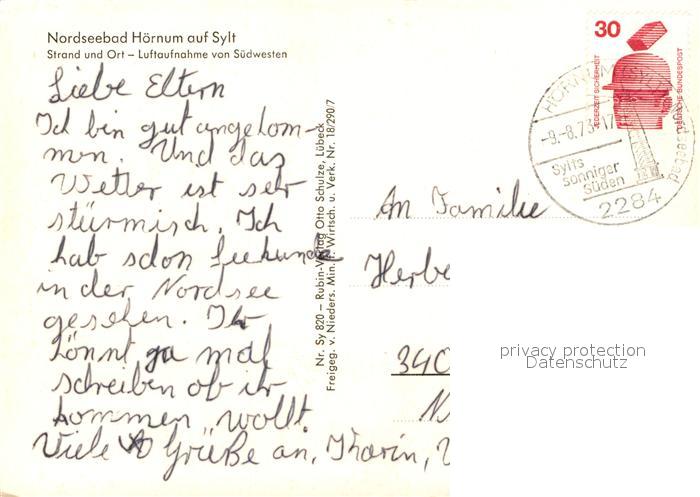 Nordseebad Hörnum auf Sylt
Strand und Ort – Luftaufnahme von Südwesten
Liebe Eltern
Ich bin gut angekom-
men. Und das
Wetter ist sehr
stürmisch. Ich
hab schon Seehunde
in der Nordsee
gesehen. Ihr
könnt ja mal
schreiben ob ihr
kommen wollt.
Viele Grüße an,
Nr. Sy 820 – Rubin-Verlag Otto Schulze, Lübeck
Freigeg. v. Nieders. Min. f. Wirtsch. u. Verk. Nr. 18/290/7
An Familie
Herbe
340
30
JEDERZEIT SICHERHEIT
DEUTSCHE BUNDESPOST
HÖRNUM (SYLT)
Nordseebad
-9.-8.73-17
Sylts
sonniger
Süden
2284
privacy protection
Datenschutz